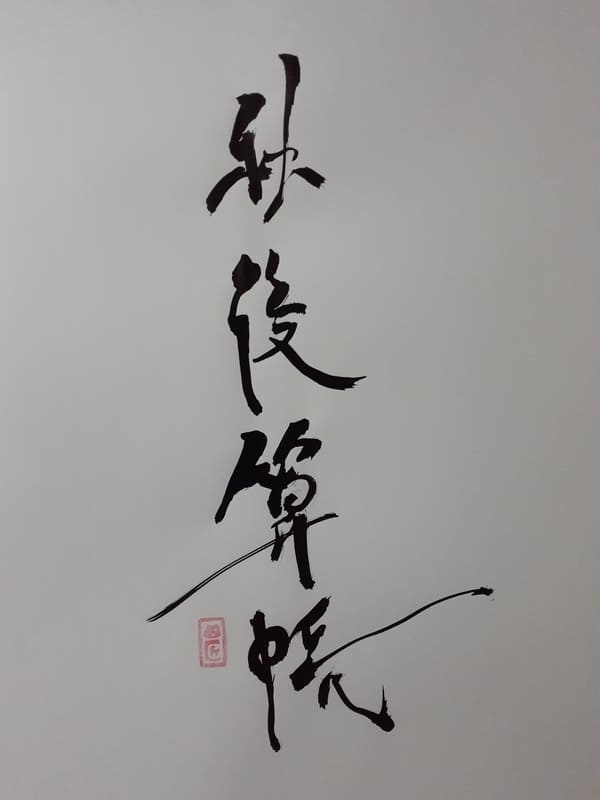 秋後算帳